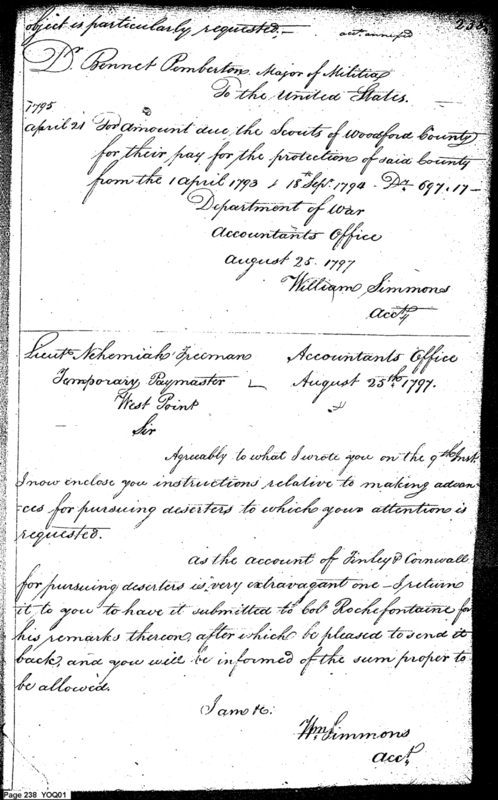 object is particularly requested.—
acct annexed
238.
Dr. Bennet Pemberton, Major of Militia
To the United States.
1795
April 21 For Amount due, the Scouts of Woodford County
for their pay for the protection of said County
from the 1 April 1793 to 18th Sepr. 1794 - Dr. 697.17—
Department of War
Accountants Office
August 25. 1797
William Simmons
Acct.
Lieut. Nehemiah Freeman Accountants Office
Temporary Paymaster August 25th. 1797.
West Point
Sir
Agreeably to what I wrote you on the 9th Inst.
I now enclose you instructions relative to making advan-
ces for pursuing deserters to which your attention is
requested.
As the account of Finley & Cornwall
for pursuing deserters is very extravagant one - I return
it to you to have it submitted to Col. Rochefontaine for
his remarks thereon, after which be pleased to send it
back, and you will be informed of the sum proper to
be allowed.
I am &c.
Wm. Simmons
Acct.
Page 238 YOQ01